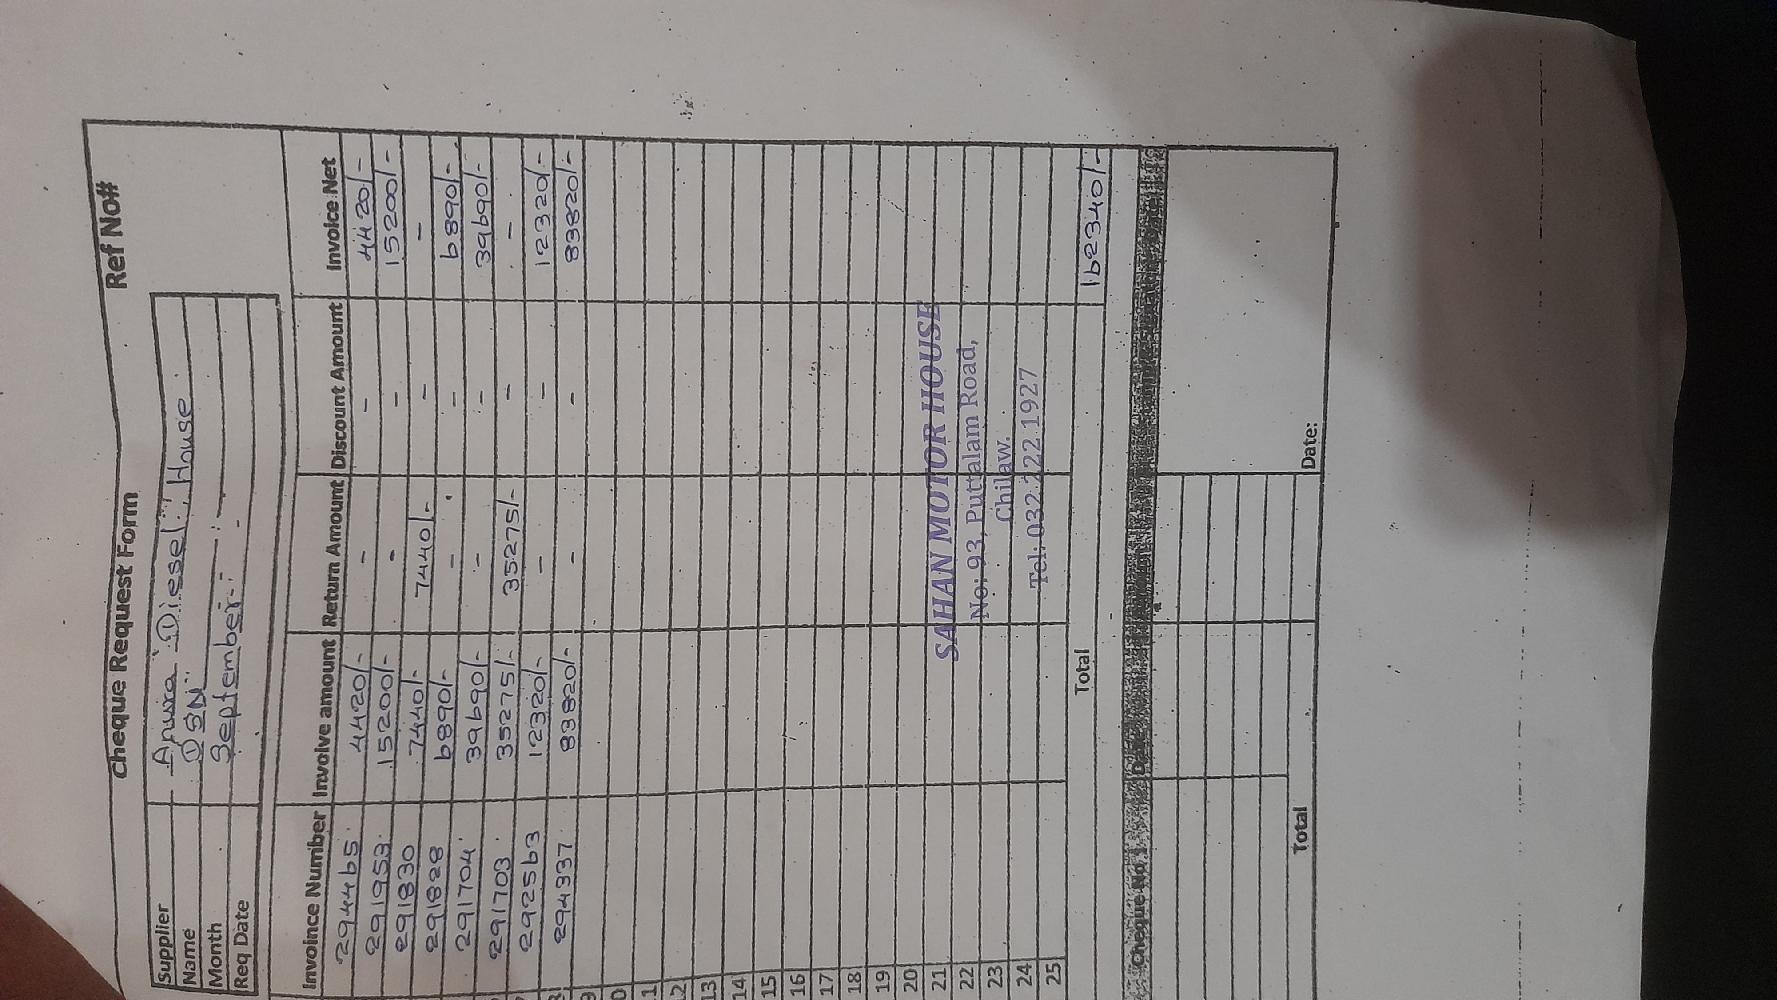 Cheque Request Form Ref No#
Supplier Anura Diesel House
Name DSN
Month September
Req Date
Invoince Number Involve amount Return Amount Discount Amount Invoice Net
294465 4420/- - - 4420/-
291953 15200/- - - 15200/-
291830 7440/- 7440/- - -
291828 6890/- - - 6890/-
291704 39690/- - - 39690/-
291703 35275/- 35275/- - -
292563 12320/- - - 12320/-
294337 83820/- - - 83820/-
9
0
11
12
13
14
15
16
17
18
19
20
21
22
23
24
25
SAHAN MOTOR HOUSE
No: 93, Puttalam Road,
Chilaw.
Tel: 032 222 1927
Total 162340/-
Cheque No
Total Date: